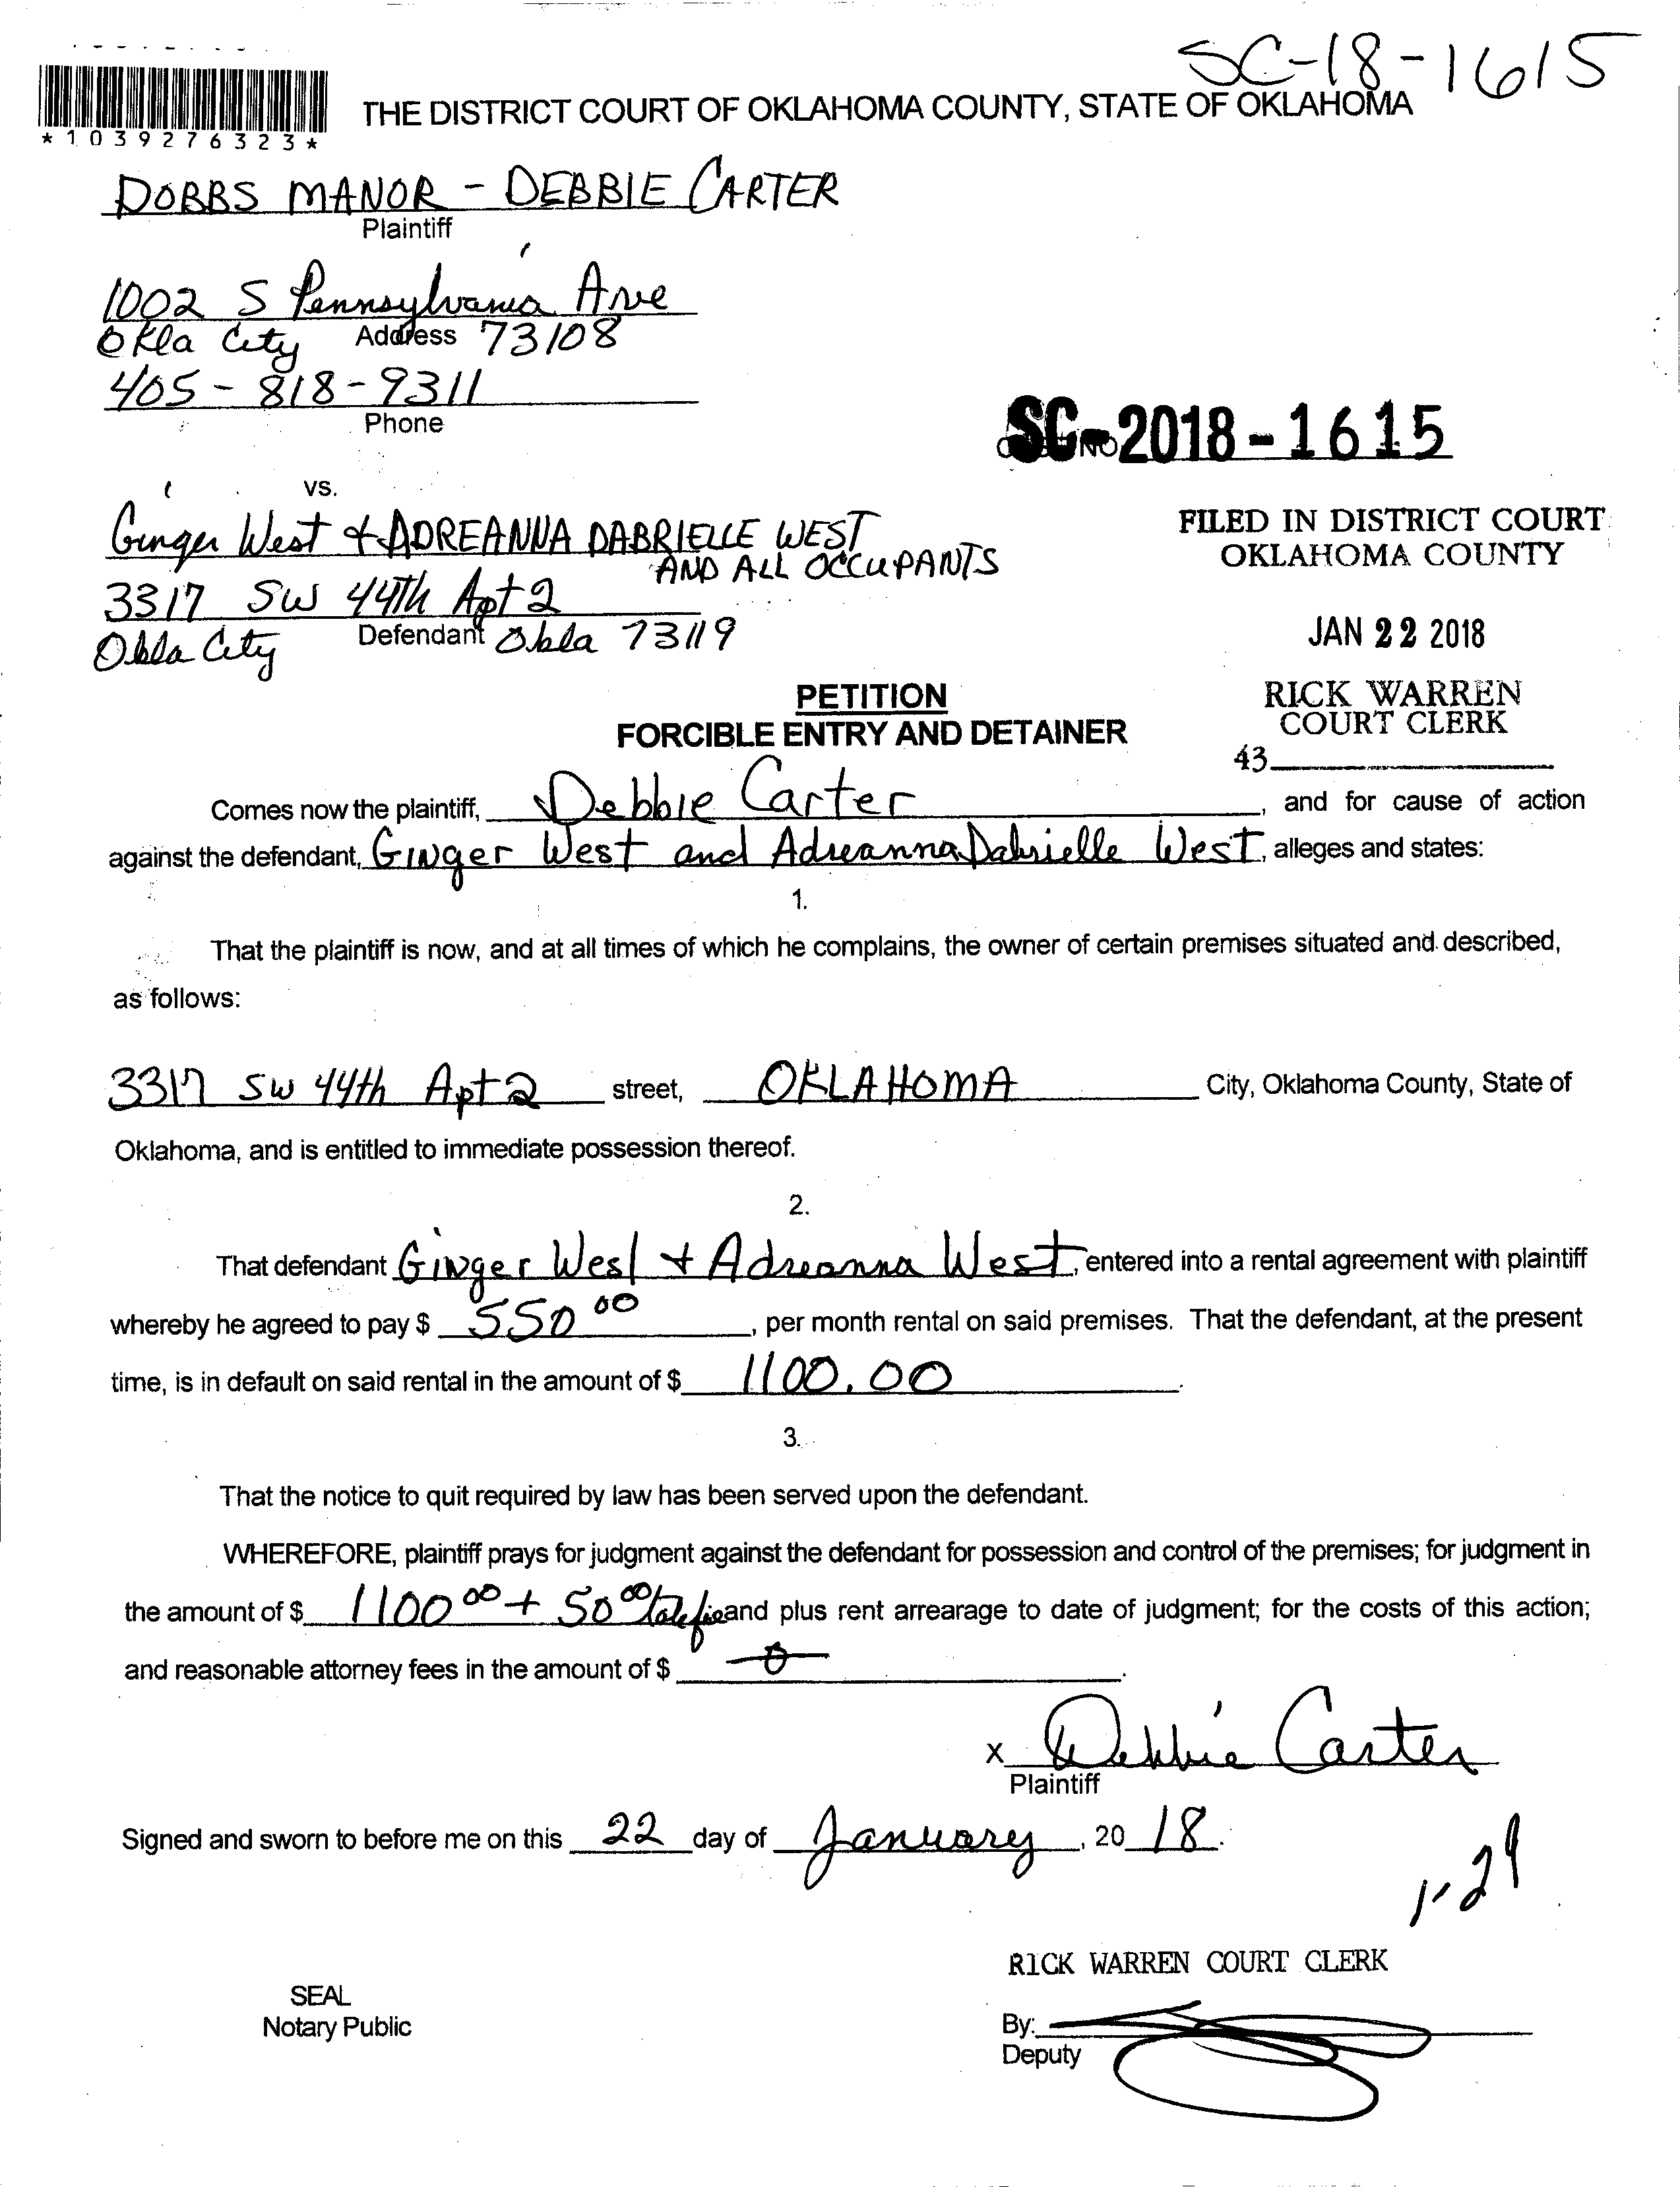 SC-18-1615
*1039276323*
THE DISTRICT COURT OF OKLAHOMA COUNTY, STATE OF OKLAHOMA
DOBBS MANOR - DEBBIE CARTER
Plaintiff
1002 S Pennsylvania Ave
Okla City Address 73108
405-818-9311
Phone
SC-2018-1615
vs.
Ginger West + ADREANNA DABRIELLE WEST
AND ALL OCCUPANTS
3317 SW 44Th Apt 2
Okla City Defendant Okla 73119
FILED IN DISTRICT COURT
OKLAHOMA COUNTY
JAN 22 2018
RICK WARREN
COURT CLERK
43
PETITION
FORCIBLE ENTRY AND DETAINER
Comes now the plaintiff, Debbie Carter, and for cause of action
against the defendant, Ginger West and Adreanna Dabrielle West, alleges and states:
1.
That the plaintiff is now, and at all times of which he complains, the owner of certain premises situated and described,
as follows:
3317 SW 44th Apt 2 street, OKLAHOMA City, Oklahoma County, State of
Oklahoma, and is entitled to immediate possession thereof.
2.
That defendant Ginger West + Adreanna West, entered into a rental agreement with plaintiff
whereby he agreed to pay $ 550 00, per month rental on said premises. That the defendant, at the present
time, is in default on said rental in the amount of $ 1100.00.
3.
That the notice to quit required by law has been served upon the defendant.
WHEREFORE, plaintiff prays for judgment against the defendant for possession and control of the premises; for judgment in
the amount of $ 1100 00 + 50 00 late fee and plus rent arrearage to date of judgment; for the costs of this action;
and reasonable attorney fees in the amount of $ 0.
x Debbie Carter
Plaintiff
Signed and sworn to before me on this 22 day of January, 20 18.
1-29
RICK WARREN COURT CLERK
SEAL
Notary Public
By:
Deputy